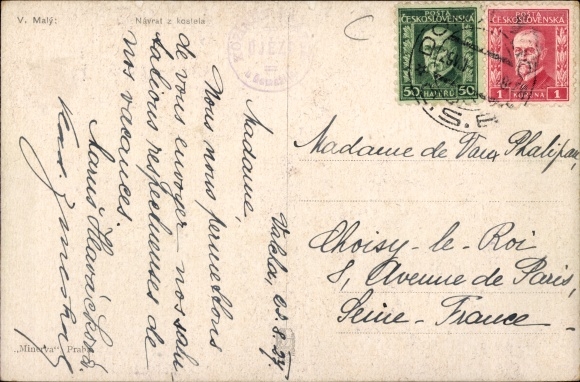 V. Malý:
Návrat z kostela
POŠTA
ČESKOSLOVENSKÁ
50 HALÉŘŮ 50
POŠTA
ČESKOSLOVENSKÁ
1 KORUNA 1
Madame de Vaux Phalipau,
Choisy-le-Roi
8, Avenue de Paris,
Seine-France
28. 8. 27.
Madame,
Nous nous permettons
de vous envoyer nos salu-
tations respectueuses de
nos vacances.
"Minerva" Praha